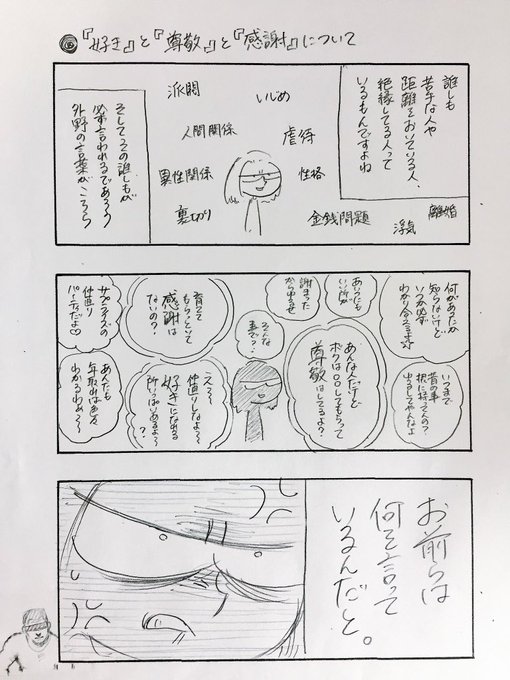 『好き』と『尊敬』と『感謝』について
誰しも
苦手な人や
距離をおいている人、
絶縁してる人って
いるもんですよね
派閥
いじめ
人間関係
虐待
異性関係
性格
裏切り
金銭問題
浮気
離婚
そしてその誰しもが
必ず言われるであろう
外野の言葉がこちら
何があったか
知らないけど
いつか必ず
わかり合えるよ
いつまで
昔の事
根に持ってんの?
ゆるしてやんなよ
あいつにも
いい所が
謝まった
から許せ
あんな人だけど
ボクは〇〇してもらって
尊敬はしてるよ?
そんな
事で?
育てて
もらっといて
感謝は
ないの?
え〜〜
仲直ししなよ〜〜
好きになれる
所いっぱいあるよ〜
?
サプライズの
仲直り
パーティだよ♡
あんたも
年取れば色々
わかるわぁ〜〜
お前らは
何を言って
いるんだと。